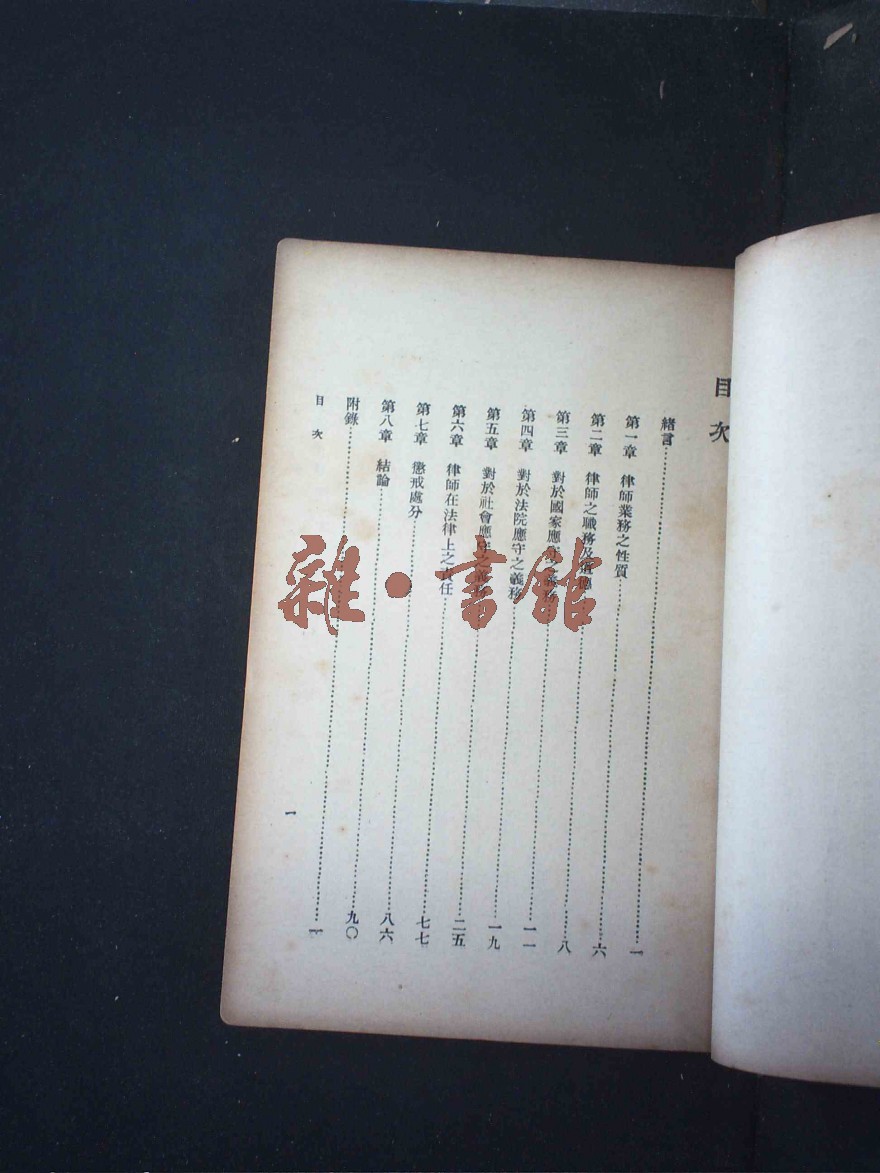 目次
緒言……一
第一章 律師業務之性質……六
第二章 律師之職務及道德……八
第三章 對於國家應守之義務……一一
第四章 對於法院應守之義務……一九
第五章 對於社會應守之義務……二五
第六章 律師在法律上之責任……七七
第七章 懲戒處分……八六
第八章 結論……九〇
附錄……一
目次
一
雜·書館